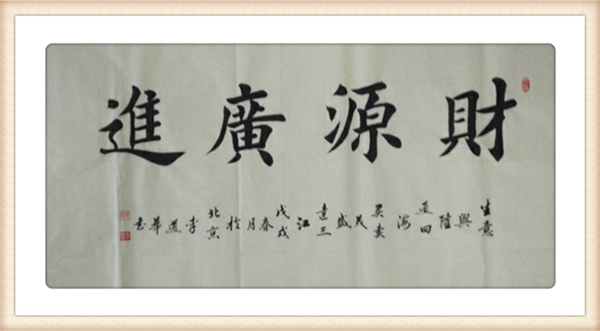 財源廣進
生意興隆通四海買賣茂盛達三江戊戌春月於北京李道華书